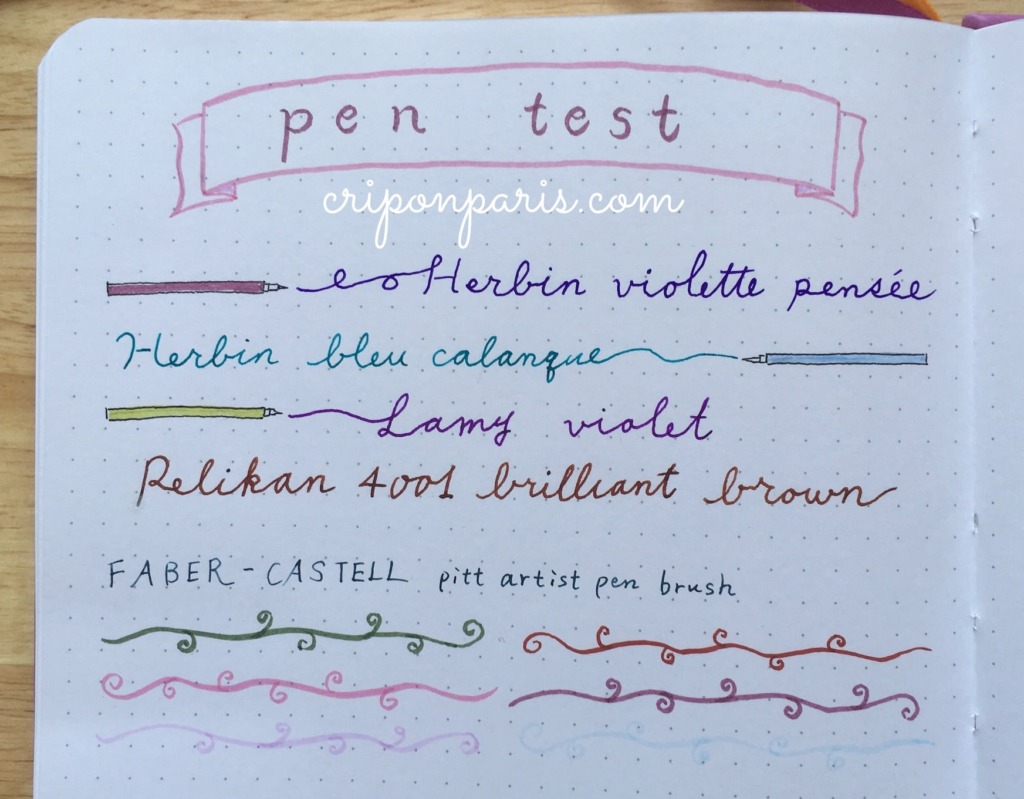 pen test
criponparis.com
Herbin violette pensée
Herbin bleu calanque
Lamy violet
Pelikan 4001 brilliant brown
FABER-CASTELL pitt artist pen brush